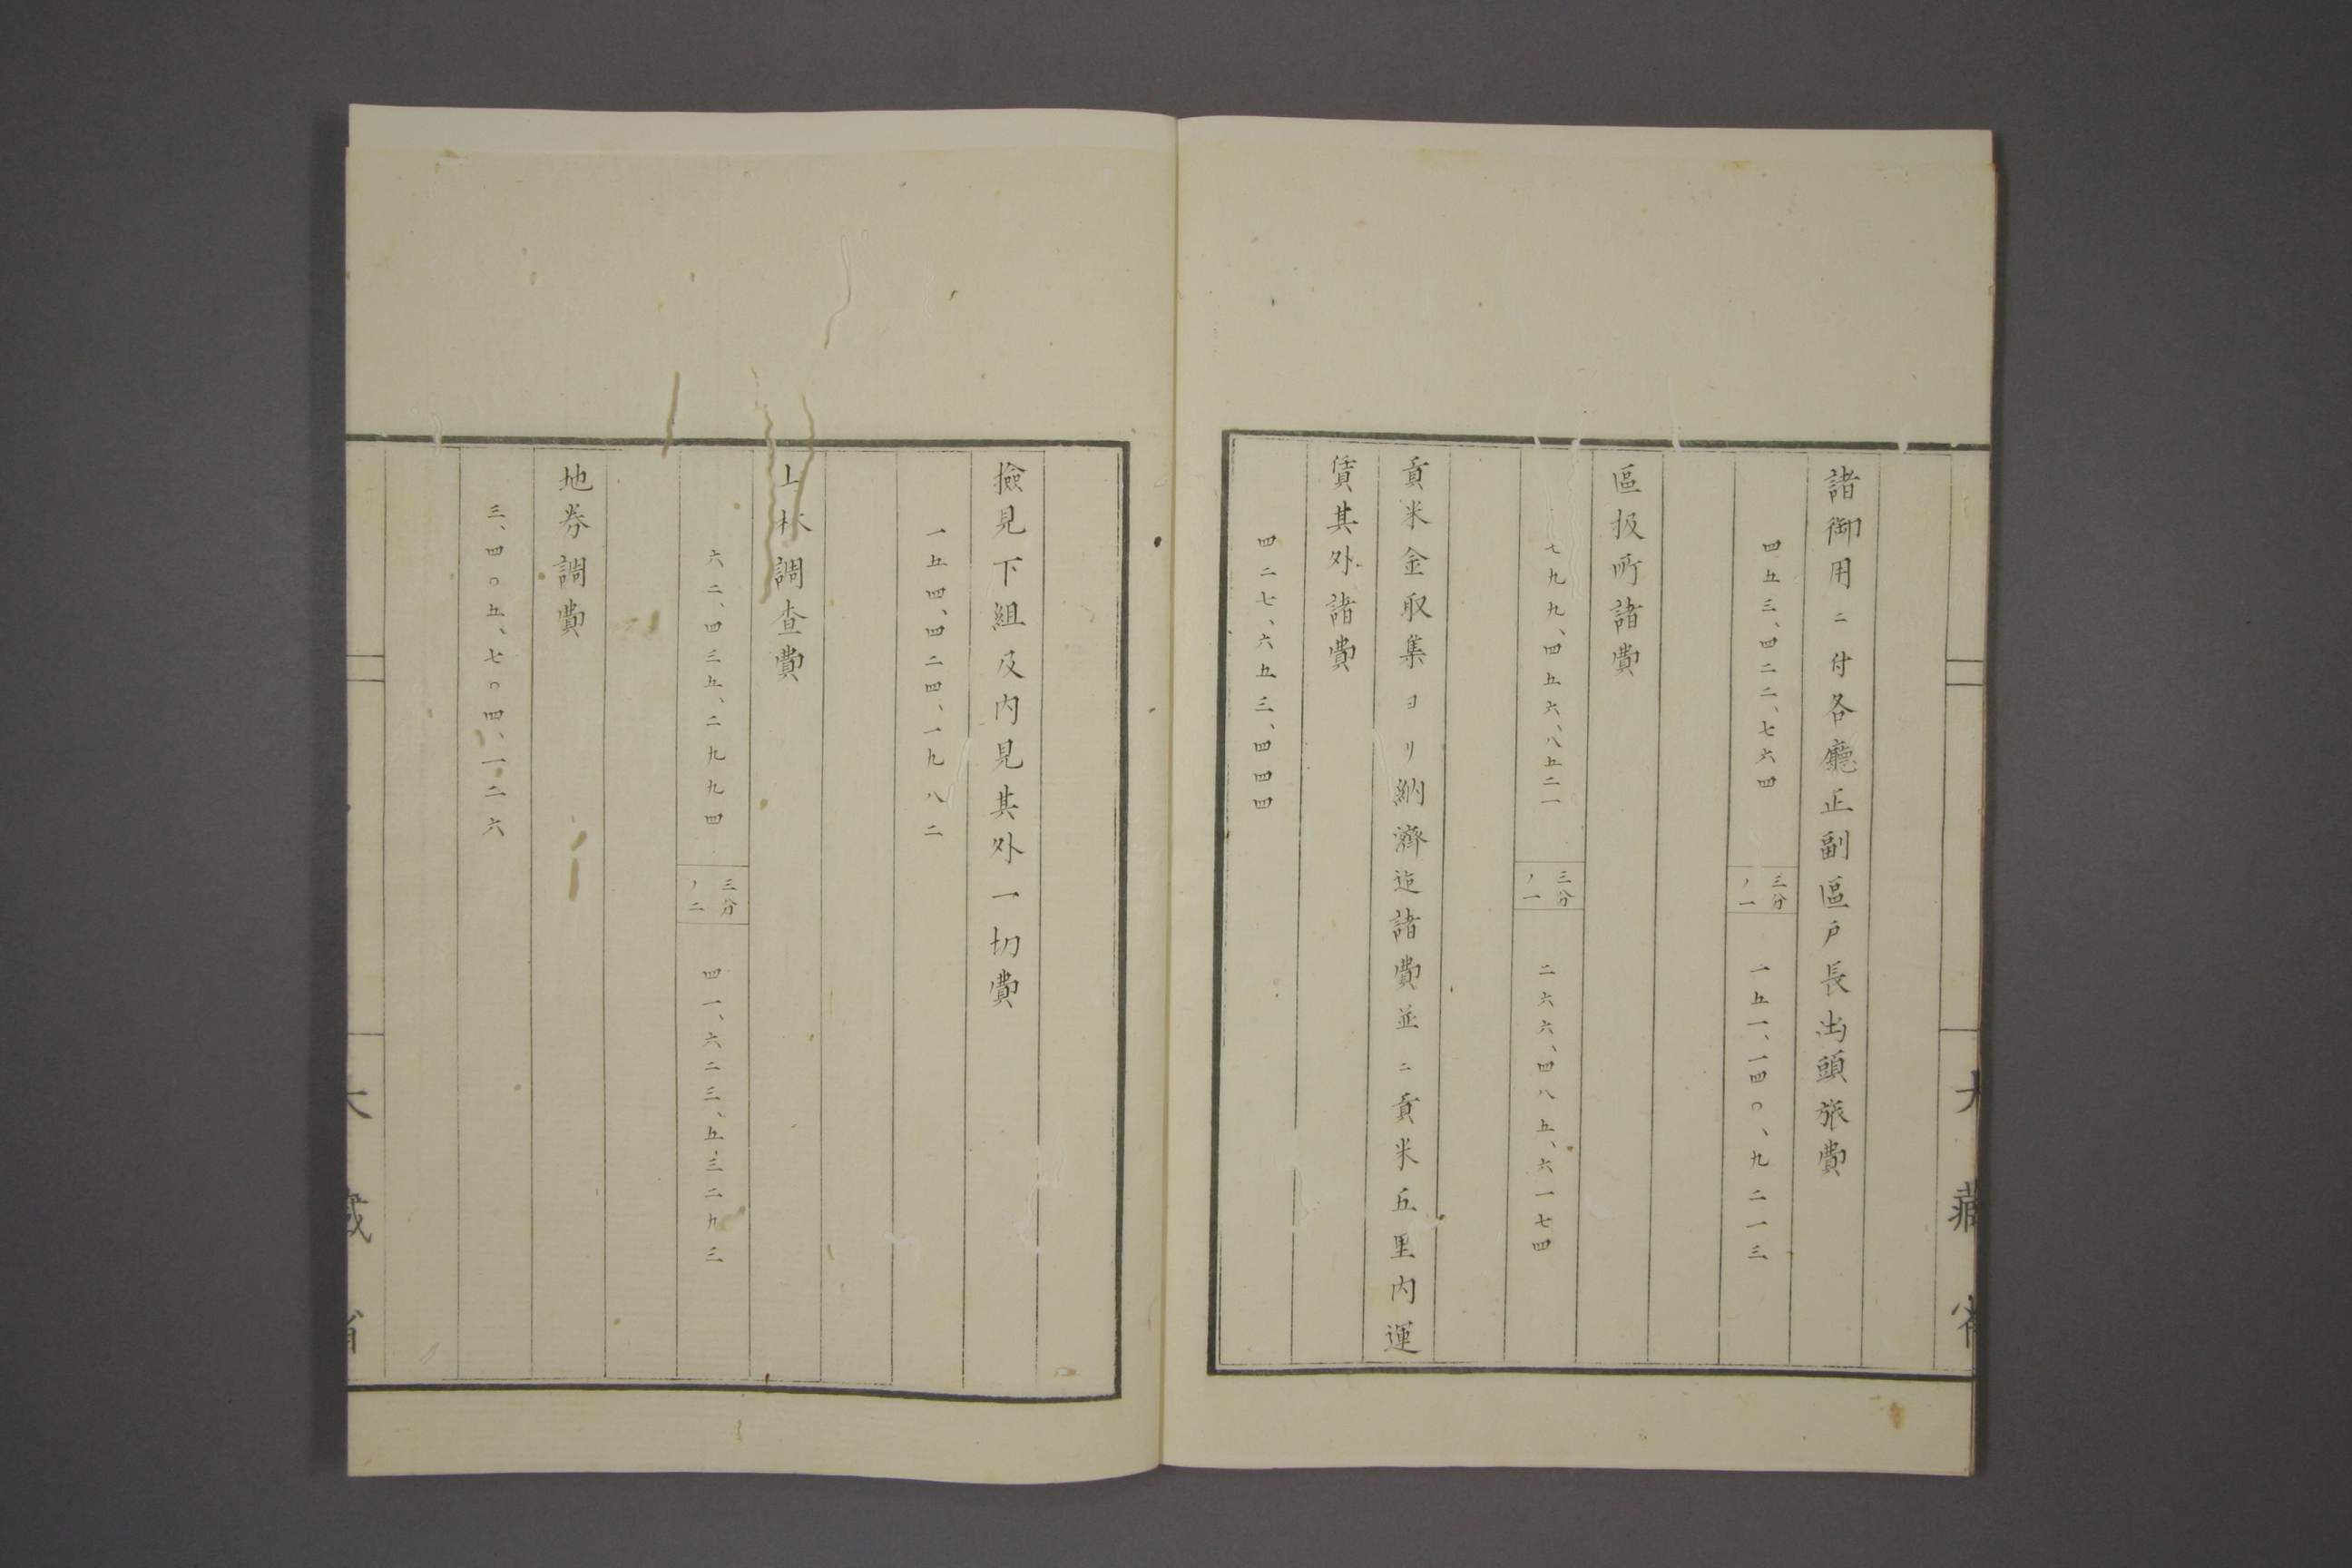 諸御用ニ付各廳正副區戸長出頭旅費
四五三、四二二、七六四 三分ノ一 一五一、一四〇、九二一三
區扱所諸費
七九九、四五六、八五二一 三分ノ一 二六六、四八五、六一七四
貢米金取集ヨリ納濟迄諸費並ニ貢米五里内運
賃其外諸費
四二七、六五三、四四四
大藏省
撿見下組及内見其外一切費
一五四、四二四、一九八二
上林調査費
六二、四三五、二九九四 三分ノ二 四一、六二三、五三二九三
地券調費
三、四〇五、七〇四、一二六
大藏省